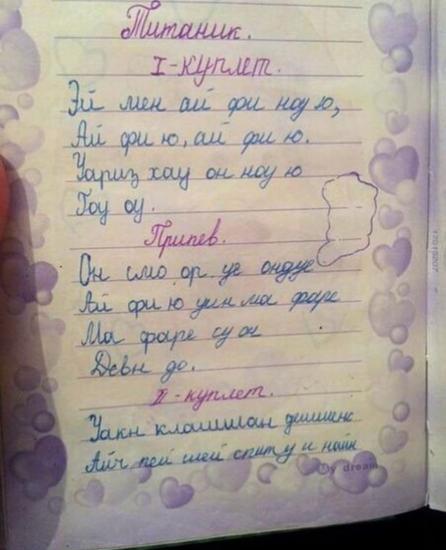 Титаник.
I-куплет.
Эй мен ай фи ноу ю,
Ай фи ю, ай фи ю.
Уариз хау он ноу ю
Гоу оу.
Припев.
Он смо ор уе ондуе
Ай фи ю уин ма фаре
Ма фаре су он
Девн до.
II-куплет.
Уакн клашиан
Айч пей шей спит у и найн
My dream